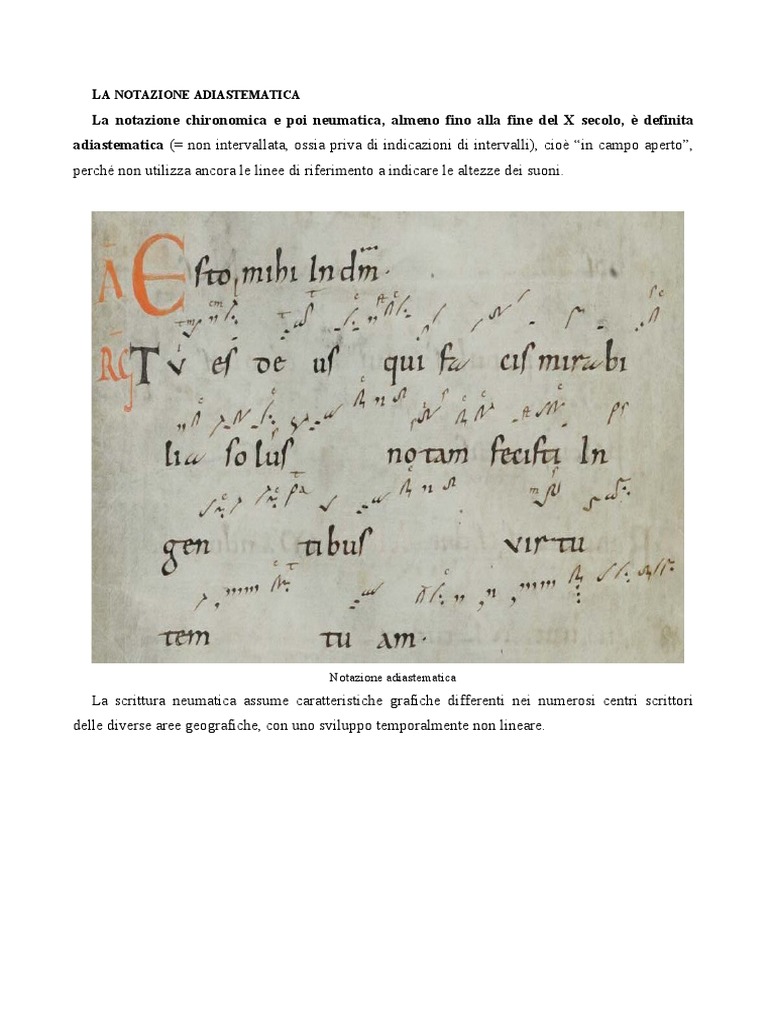 LA NOTAZIONE ADIASTEMATICA
La notazione chironomica e poi neumatica, almeno fino alla fine del X secolo, è definita
adiastematica (= non intervallata, ossia priva di indicazioni di intervalli), cioè “in campo aperto”,
perché non utilizza ancora le linee di riferimento a indicare le altezze dei suoni.
A Esto mihi In dm.
RG Tu es de us qui fa cis mirabi
lia solus notam fecisti In
gen tibus virtu
tem tu am.
Notazione adiastematica
La scrittura neumatica assume caratteristiche grafiche differenti nei numerosi centri scrittori
delle diverse aree geografiche, con uno sviluppo temporalmente non lineare.